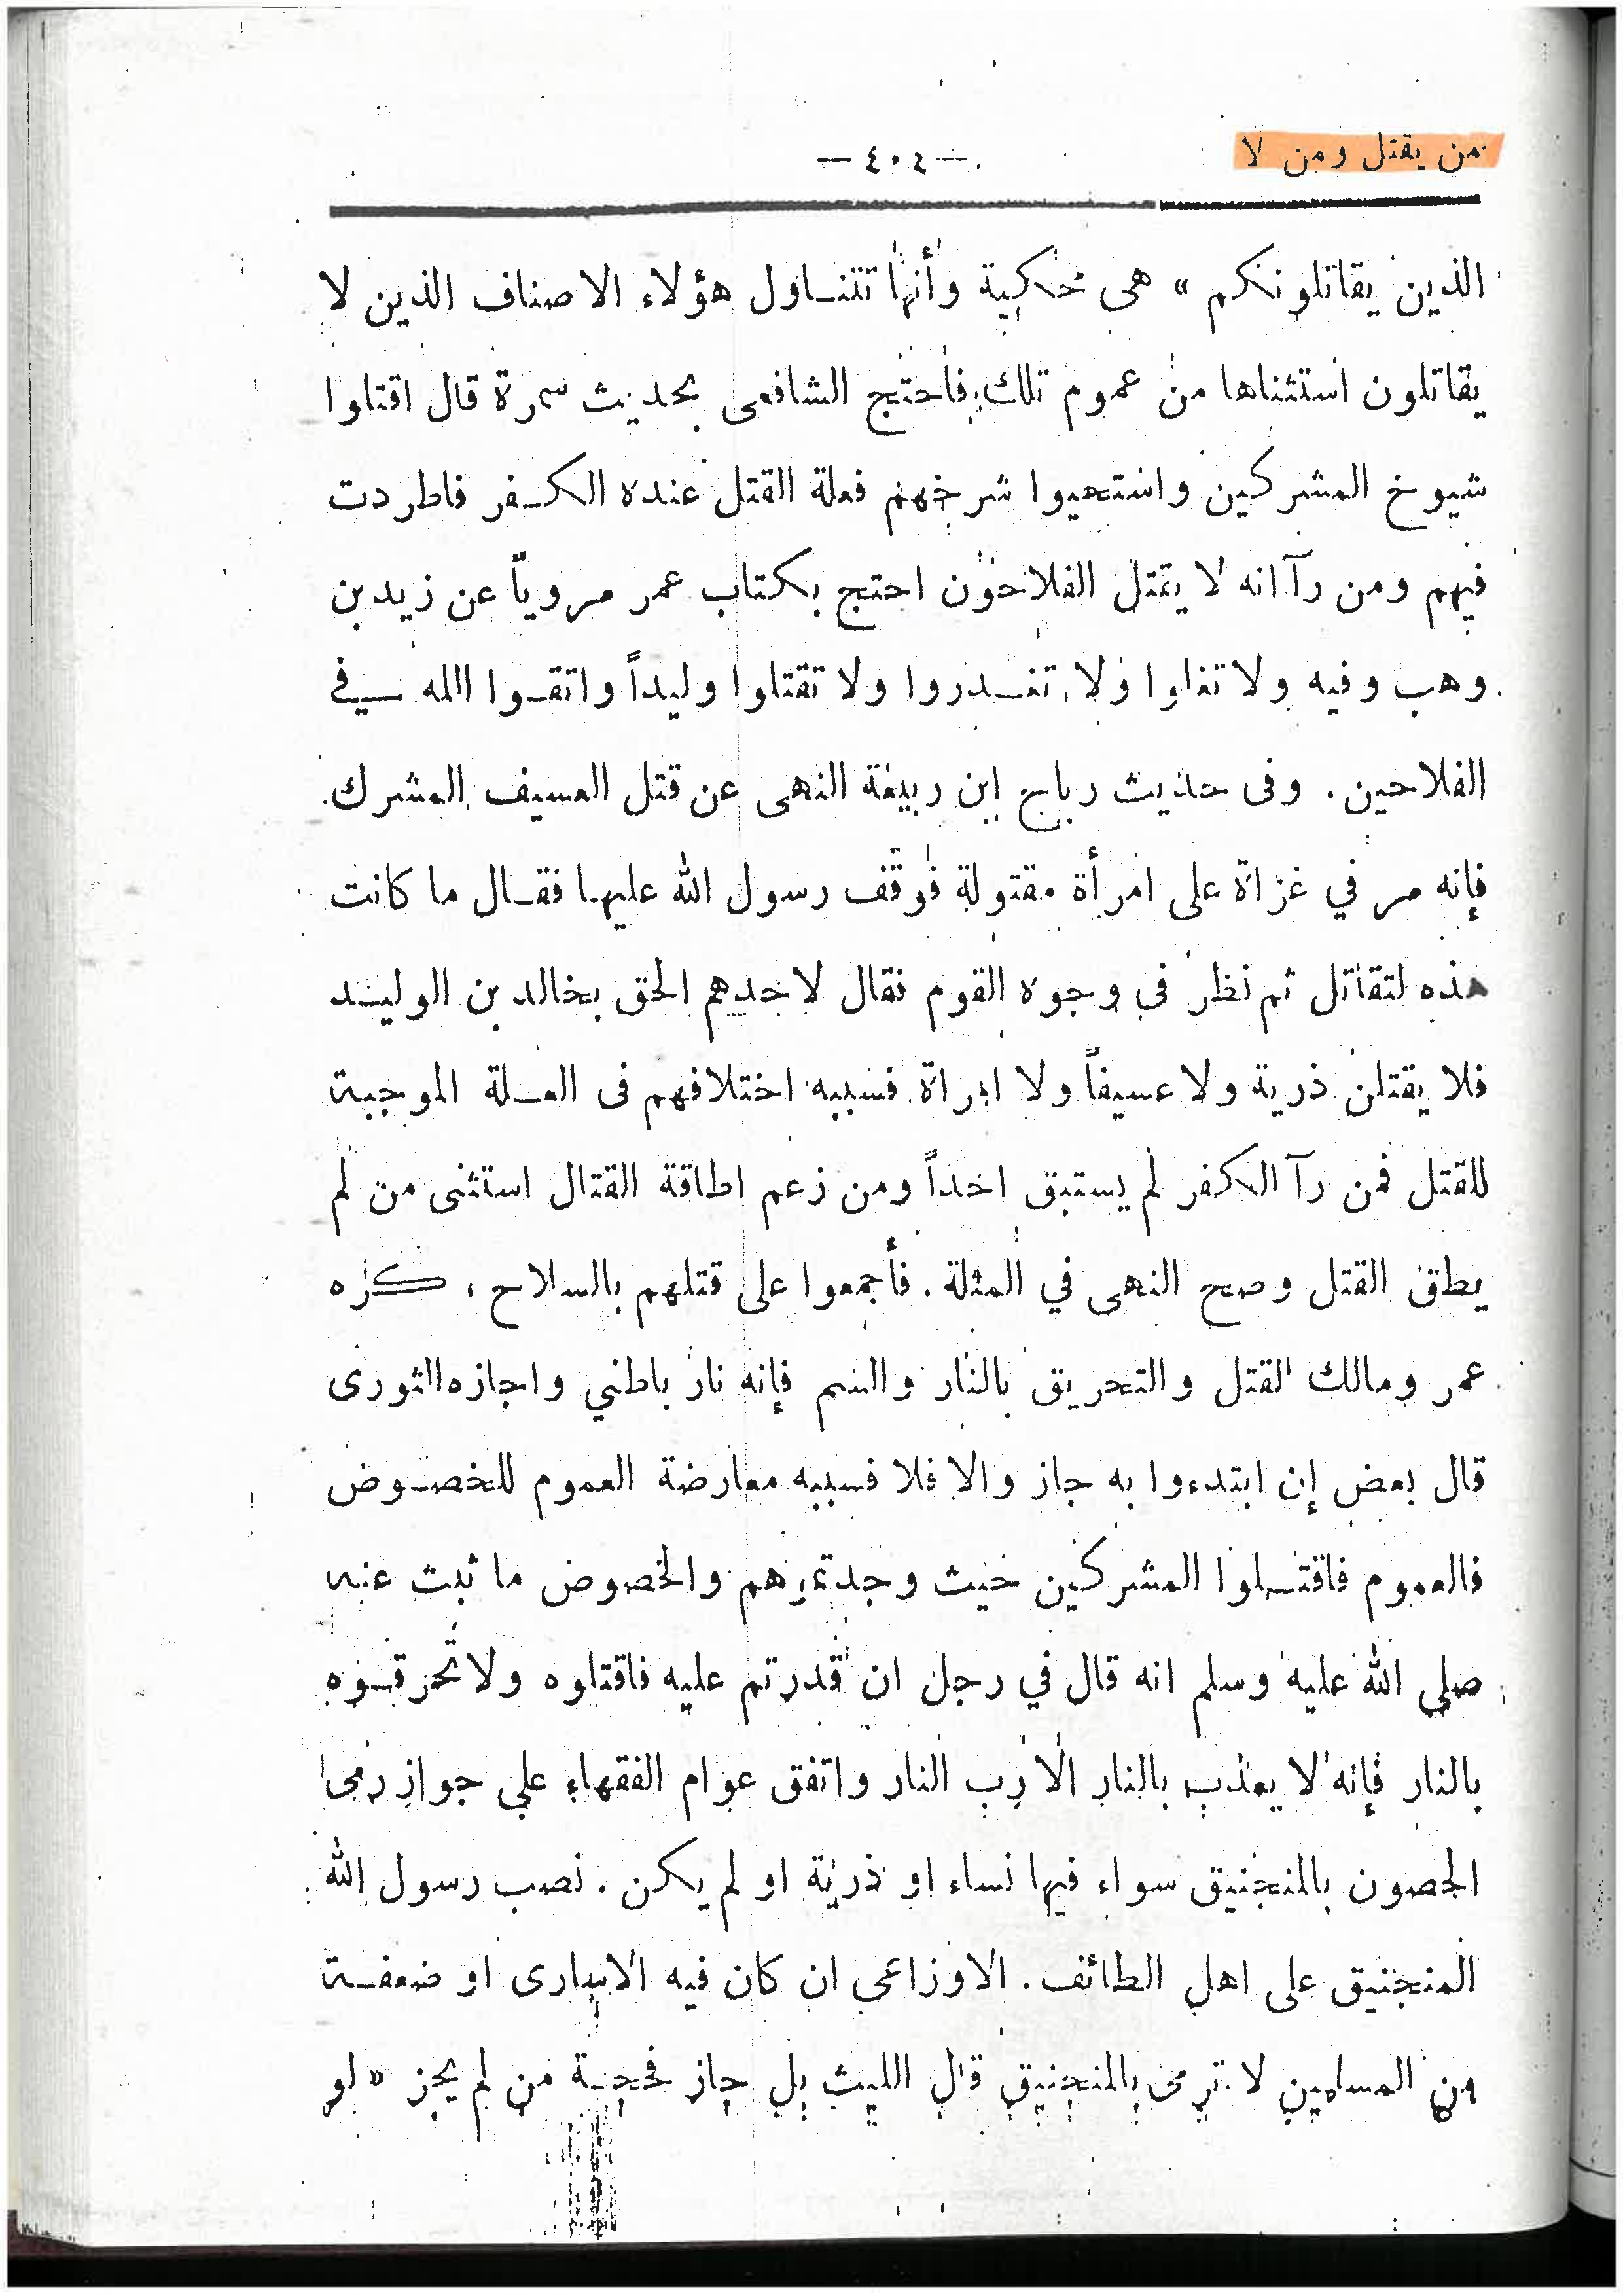 من يقتل ومن لا
— ٤٠٤ —
الذين يقاتلونكم » هى محكية وأنها تتناول هؤلاء الاصناف الذين لا
يقاتلون استثناها من عموم تلك فاحتج الشافعى بحديث سمرة قال اقتلوا
شيوخ المشركين واستحيوا شرخهم فعلة القتل عنده الكفر فاطردت
فيهم ومن رآ انه لا يقتل الفلاحون احتج بكتاب عمر مروياً عن زيد بن
وهب وفيه ولا تغلوا ولا تغدروا ولا تقتلوا وليداً واتقوا الله في
الفلاحين . وفى حديث رباح ابن ربيعة النهى عن قتل العسيف المشرك
فإنه مر في غزاة على امرأة مقتولة فوقف رسول الله عليها فقال ما كانت
هذه لتقاتل ثم نظر فى وجوه القوم فقال لاحدهم الحق بخالد بن الوليد
فلا يقتلن ذرية ولا عسيفاً ولا امراة فسببه اختلافهم فى العلة الموجبة
للقتل فمن رآ الكفر لم يستبق احداً ومن زعم اطاقة القتال استثنى من لم
يطق القتل وصح النهى في المثلة . فأجمعوا على قتلهم بالسلاح ، كره
عمر ومالك القتل والتحريق بالنار والسم فإنه نار باطني واجازه الثورى
قال بعض إن ابتدءوا به جاز والا فلا فسببه معارضة العموم للخصوض
فالعموم فاقتلوا المشركين حيث وجدتموهم والخصوض ما ثبت عنه
صلى الله عليه وسلم انه قال في رجل ان قدرتم عليه فاقتلوه ولا تحرقوه
بالنار فإنه لا يعذب بالنار الا رب النار واتفق عوام الفقهاء على جواز رمى
الحصون بالمنجنيق سواء فيها نساء او ذرية او لم يكن . نصب رسول الله
المنجنيق على اهل الطائف . الاوزاعى ان كان فيه الاسارى او ضعفة
من المسلمين لا ترمى بالمنجنيق قال الليث بل جاز فحجة من لم يجز « لو